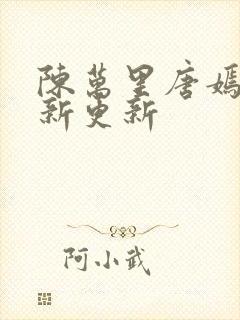 陳萬里唐嫣
新更新
阿小武